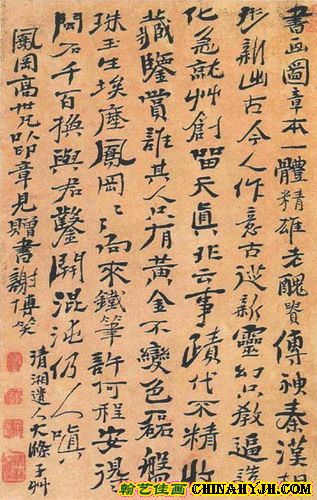 書画圖章本一體精雄老醜貴傳神秦漢相
形新出古今人作意古從新靈幻只教逼造
化急就艸創留天真非云事蹟代不精收
藏鑒賞誰其人只有黃金不變色磊盤
珠玉生埃塵鳳岡〻〻向來鐵筆許何程安
石千百換與君鑿開混沌仍人嗔
鳳岡高世兄以印章見贈書謝博笑
清湘遺人大滌子艸
翰艺佳画
CHINAHYJH.COM